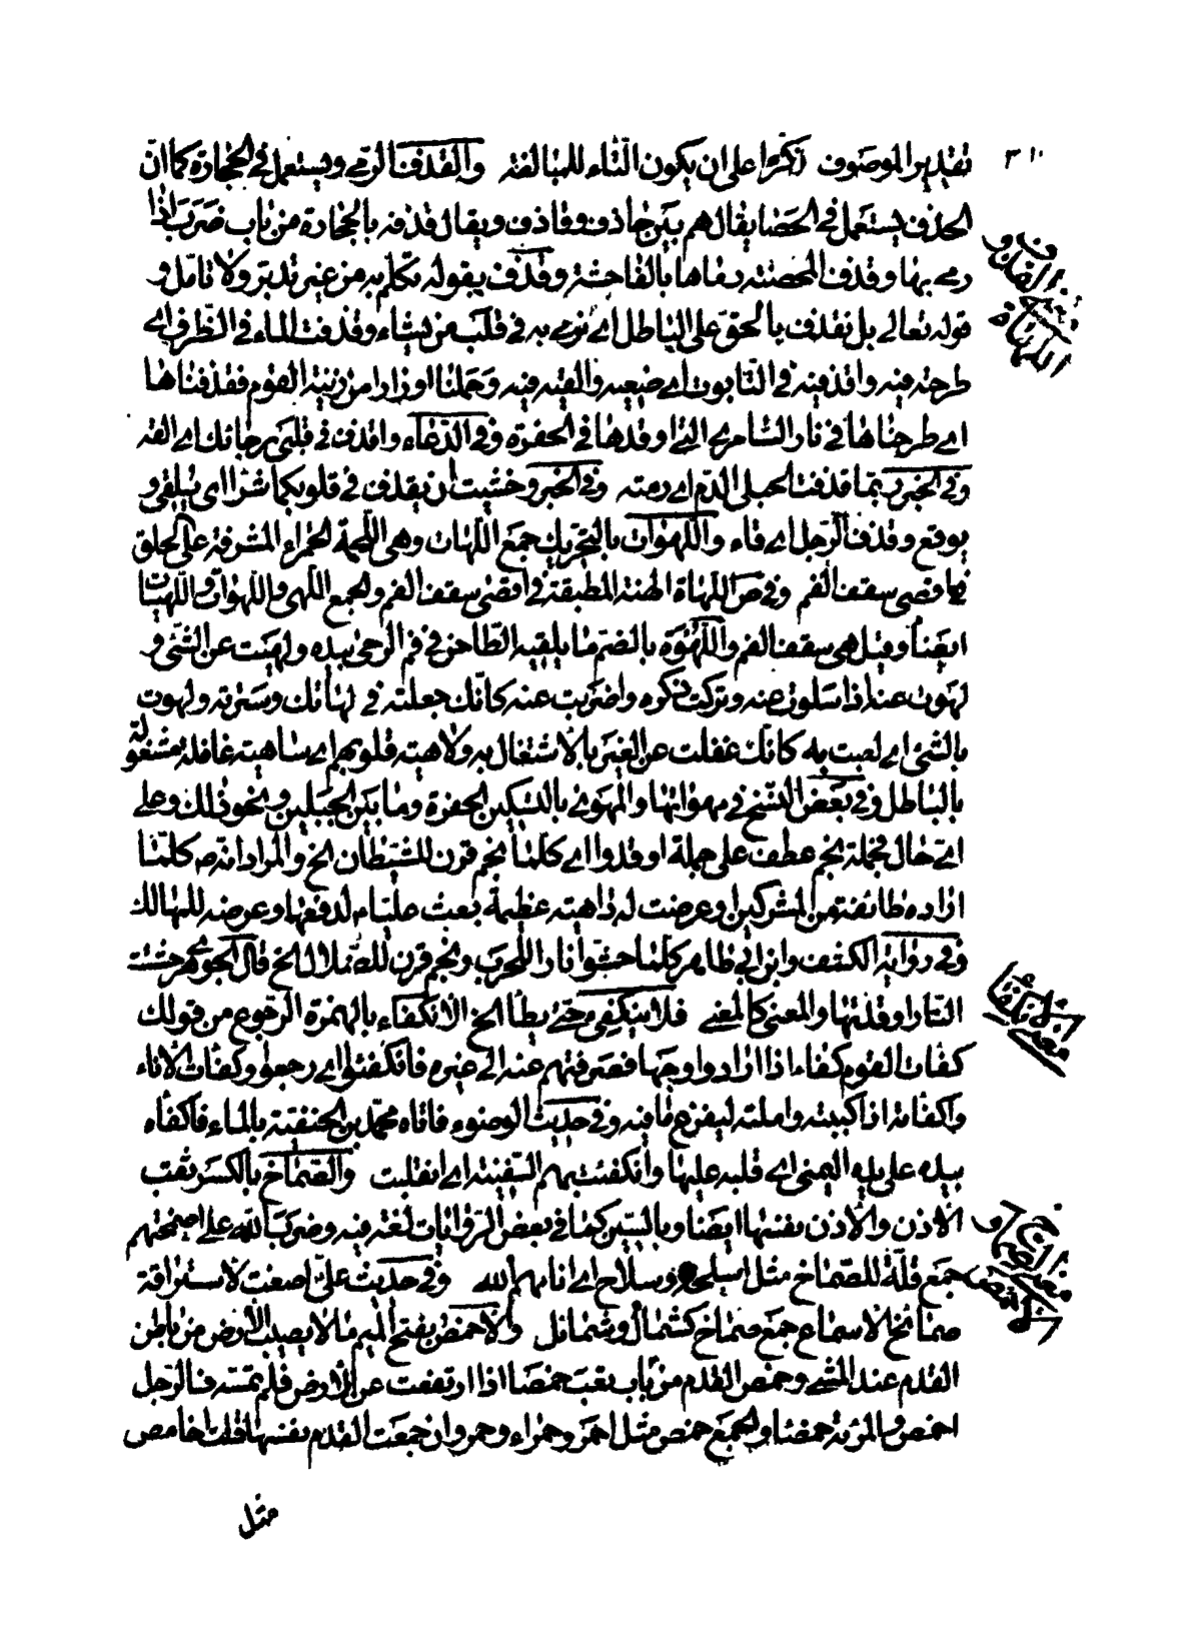 ٣١٠
تقدير الموصوف مذكرا على ان يكون التاء للمبالغة والقذف الرمى ويستعمل فى الحجارة كما انّ
الحذف يستعمل فى الحصا يقال هم بين حاذف وقاذف ويقال قذفه بالحجارة من باب ضرب اذا
رمى بها وقذف المحصنة رماها بالفاحشة وقذف بقوله تكلم به من غير تدبر ولا تامّل و
قوله تعالى بل نقذف بالحقّ على الباطل اى نرمى به فى قلب من نشاء وقذفت الماء فى الظرف اى
طرحته فيه واقذفيه فى التّابوت اى ضعيه والقيه فيه وحملنا اوزارا من زينة القوم فقذفناها
اى طرحناها فى نار السّامرى التى اوقدها فى الحفرة وفى الدّعاء واقذف فى قلبى رجائك اى القه
وفى الخبر ربّما قذفت الحبلى الدّم اى رمته وفى الخبر وخشيت ان يقذف فى قلوبكما شرّا اى يلقى و
يوقع وقذف الرّجل اى قاء واللّهوات بالتحريك جمع اللّهات وهى اللّحمة الحمراء المشرفة على الحلق
فى اقصى سقف الفم وفى ص اللّهاة الهنة المطبقة فى اقصى سقف الفم والجمع اللّهى واللّهوات واللّهيات
ايضا وقيل هى سقف الفم واللّهوة بالضم ما يلقيه الطّاحن فى فم الرحى بيده ولهيت عن الشّئ و
لهوت عنه اذا سلوت عنه وتركت ذكره واضربت عنه كانّك جعلته فى لهاتك وسترته ولهوت
بالشّئ اى لعبت به كانّك غفلت عن الغير بالاشتغال به ولاهية قلوبهم اى ساهية غافلة مشغولة
بالباطل وفى بعض النّسخ فى مهواتها والمهوى بالتسكين الحفرة وما بين الجبلين ونحو ذلك وعلى
اىّ حال فجملة نجم عطف على جملة اوقدوا اى كلما نجم قرن للشّيطان الخ والمراد انّه ص كلّما
اراده طائفة من المشركين وعرضت له داهية عظيمة بعث عليّا ع لدفعها وعرضه للمهالك
وفى رواية الكشف وابن ابى طاهر كلما حشوا نارا للحرب ونجم قرن للضّلال الخ قال الجوهرى حششت
النّار اوقدتها والمعنى كالمعنى فلا ينكفى حتى يطأ الخ الانكفاء بالهمزة الرّجوع من قولك
كفأت القوم كفاء اذا ارادوا وجها فصرفتهم عنه الى غيره فانكفئوا اى رجعوا وكفأت الاناء
واكفاته اذا كببته واملته ليفرغ ما فيه وفى حديث الوضوء فاتاه محمّد بن الحنفيّة بالماء فاكفاه
بيده على يده اليمنى اى قلبه عليها وانكفئت بهم السّفينة اى انقلبت والصّماخ بالكسر ثقب
الاذن والاذن نفسها ايضا وبالسّين كما فى بعض الرّوايات لغة فيه وضرب الله على اصمختهم
جمع قلّة للصّماخ مثل اسلحة وسلاح اى انامهم الله وفى حديث علىّ اصغت لاستراقه
صمائخ الاسماع جمع صماخ كشمال وشمائل والاخمص بفتح الميم ما لا يصيب الارض من باطن
القدم عند المشى وخمص القدم من باب تعب خمصا اذا ارتفعت عن الارض فلم تمسّه فالرّجل
اخمص والمرءة خمصاء والجمع خمص مثل احمر وحمراء وحمر وان جمعت القدم نفسها قلت اخامص
مثل
و
معنى القذف
واللهاة
معنى الانكفاء
و
معنى الصماخ
والاخمص